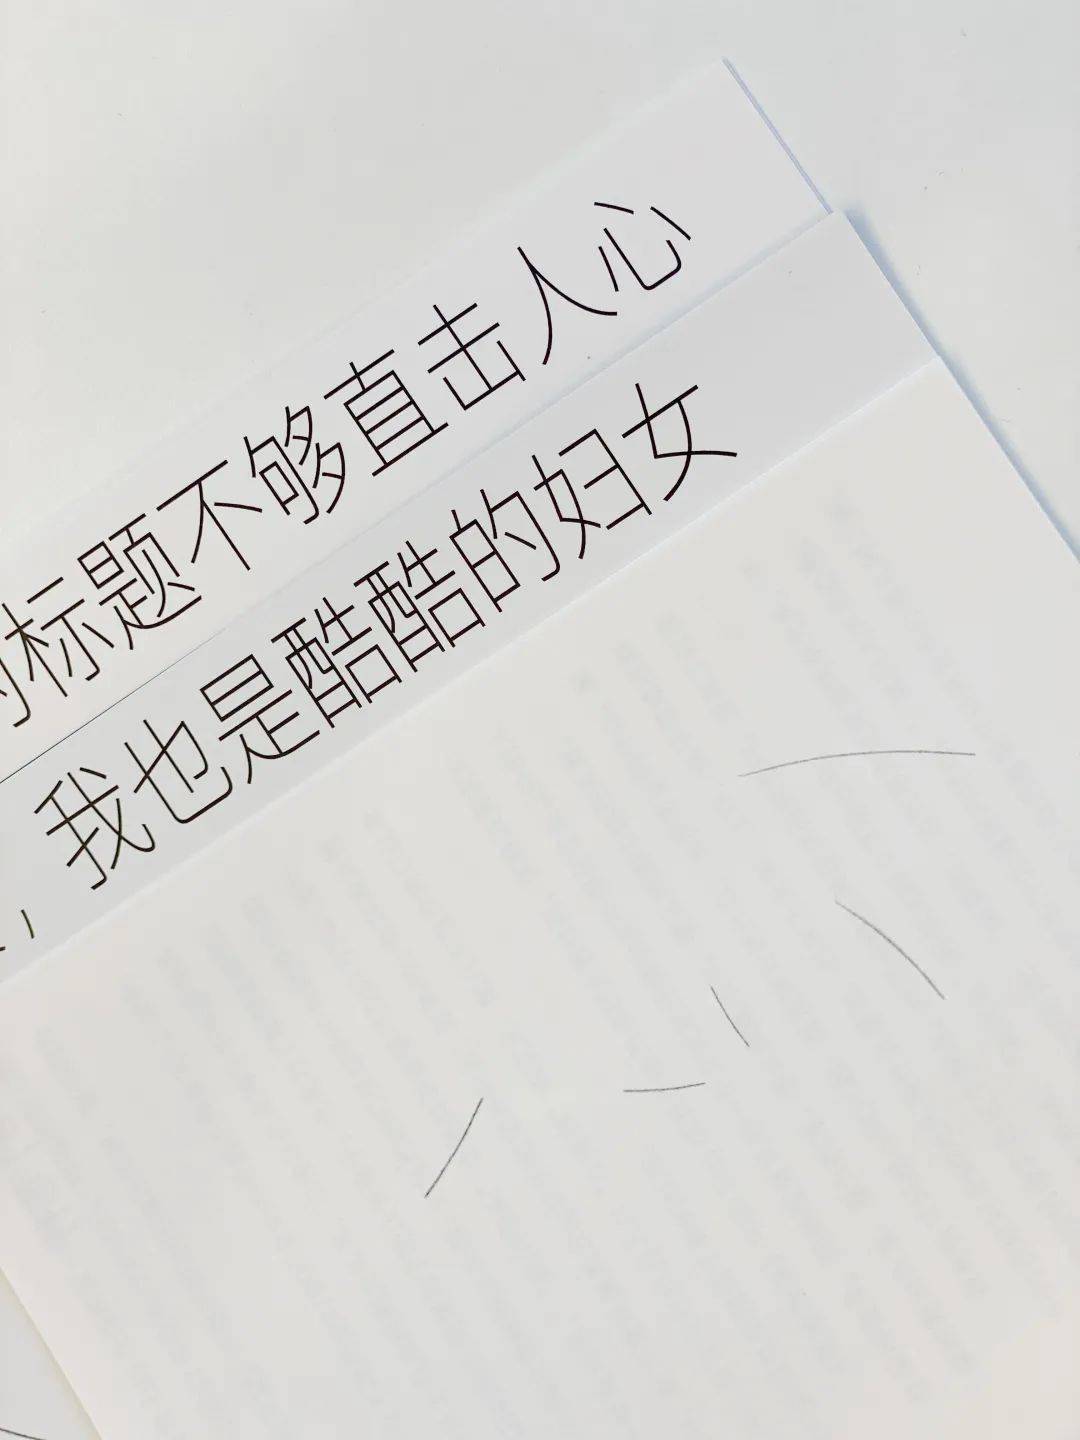 标题不够直击人心
，我也是酷酷的妇女